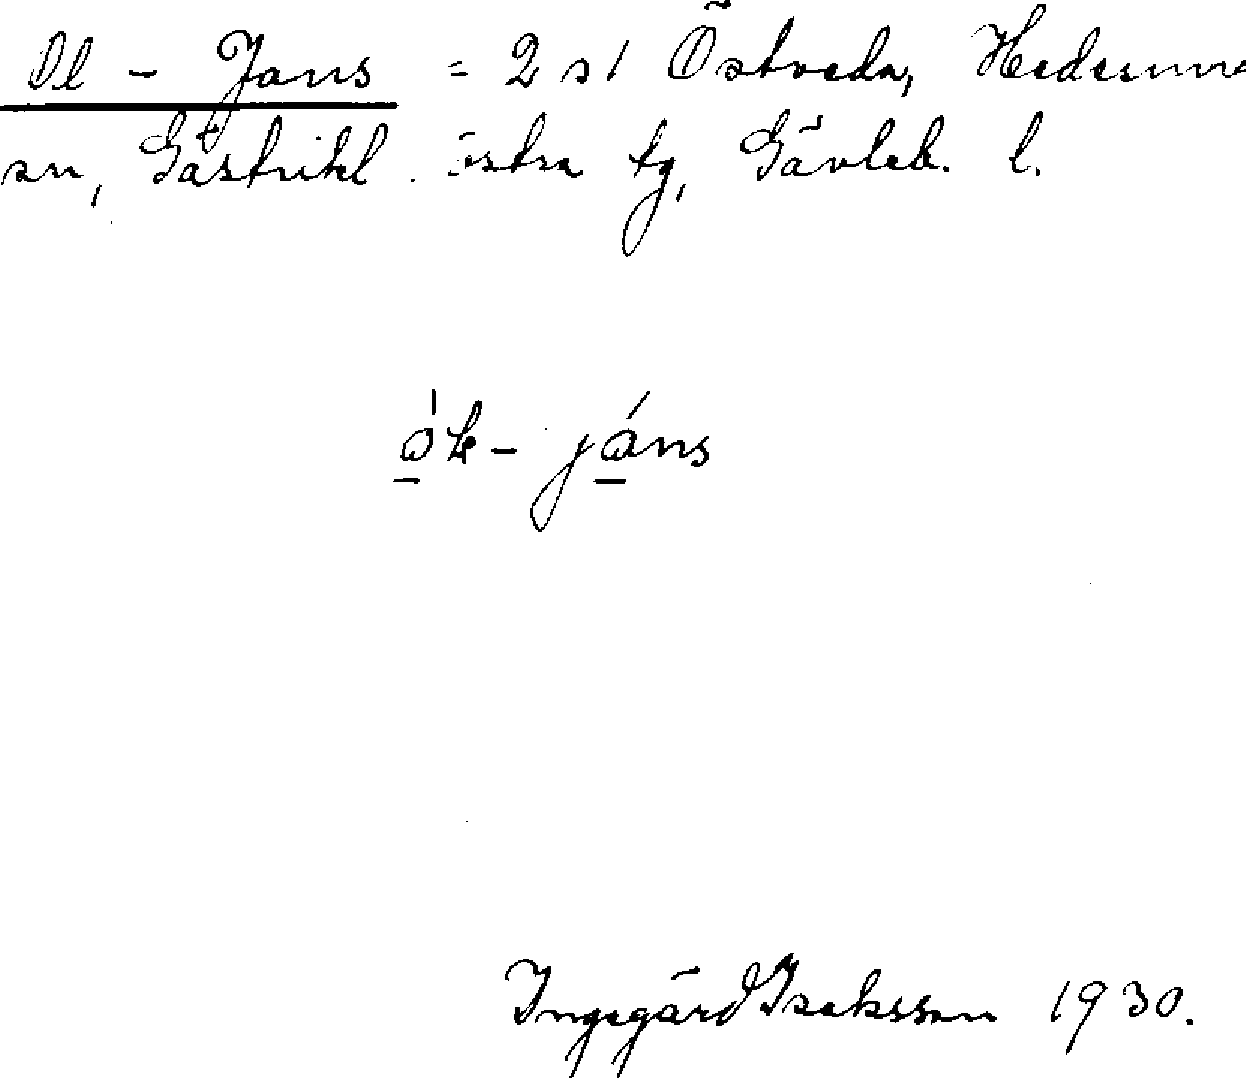 Ol - Jans = 2 s1 Östveda, Hedesunda
sn, Gästrikl. östra tg, Gävleb. l.
jáns
Ingegärd Isaksson 1930.